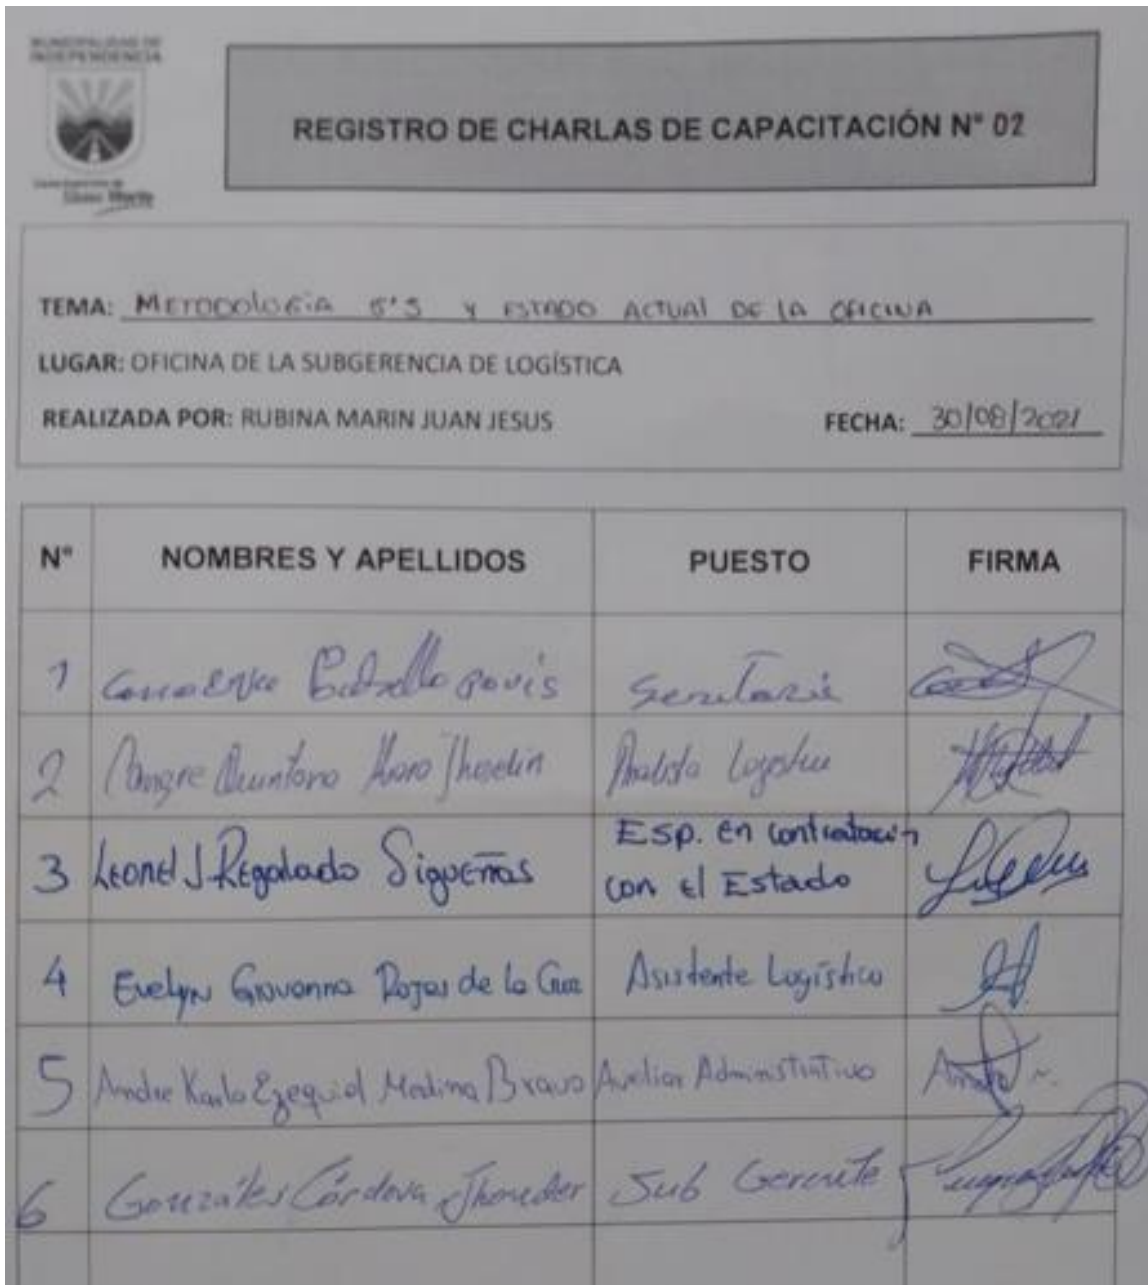 MUNICIPALIDAD DE
INDEPENDENCIA
REGISTRO DE CHARLAS DE CAPACITACIÓN N° 02
TEMA: METODOLOGIA 5'S Y ESTADO ACTUAL DE LA OFICINA
LUGAR: OFICINA DE LA SUBGERENCIA DE LOGÍSTICA
REALIZADA POR: RUBINA MARIN JUAN JESUS FECHA: 30/08/2021
N° NOMBRES Y APELLIDOS PUESTO FIRMA
1 Secretaria
2 Quintana Analista
3 Leonel J Regalado Sigueñas Esp. en contratación
con el Estado
4 Evelyn Giovanna Rojas de la Cruz Asistente Logístico
5 Andre Karlo Ezequiel Medina Bravo Auxiliar Administrativo
6 Gonzáles Córdova Jhoneder Sub Gerente